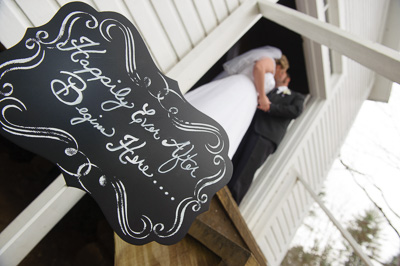 Happily
Ever After
Begins
Here......